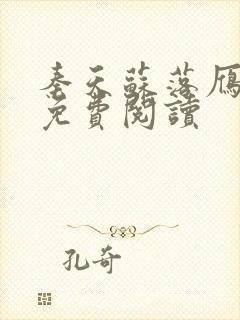 奉天蘇落雁
免費閱讀
孔奇